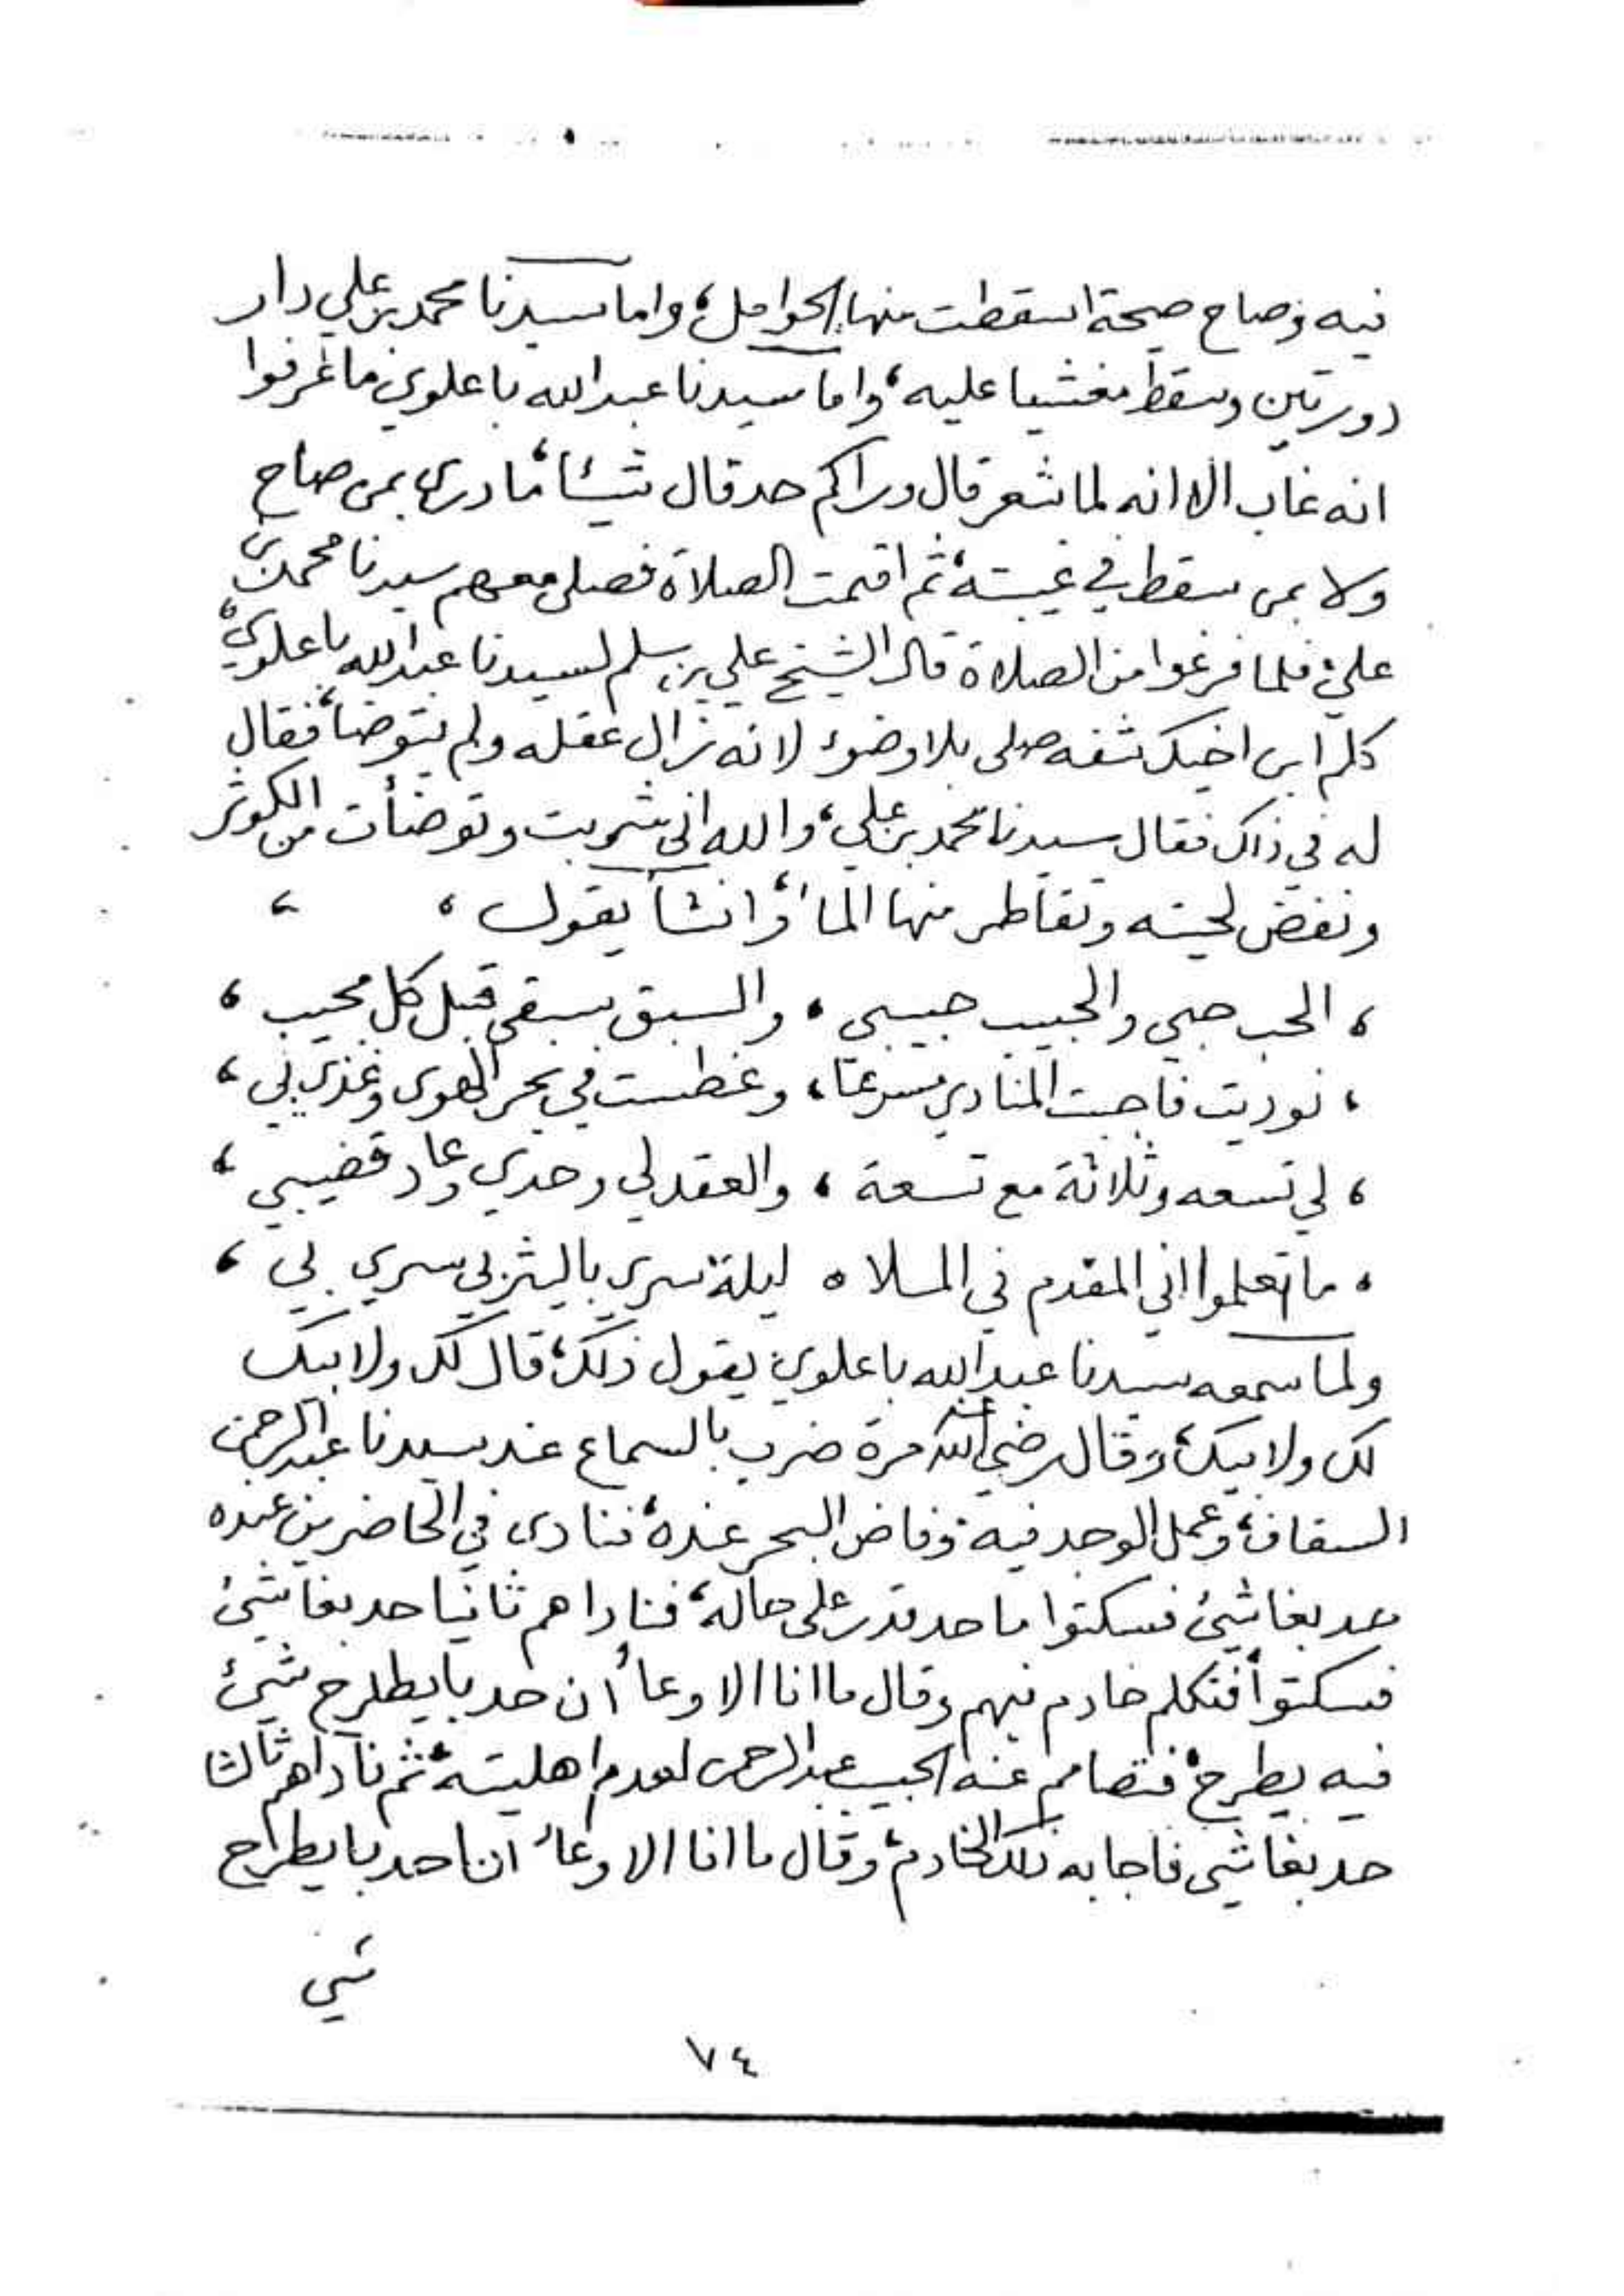 فيه وصاح صيحة اسقطت منها الحوامل، واما سيدنا محمد بن علي دار
دورتين وسقط مغشيا عليه، واما سيدنا عبدالله باعلوي ما عرفوا
انه غاب الا انه لما شعر قال وراكم حد قال شيئا، ما درى بمن صاح
ولا بمن سقط في غيبته، ثم اقيمت الصلاة فصلى معهم سيدنا محمد بن
علي، فلما فرغوا من الصلاة قال الشيخ علي بن سلم لسيدنا عبدالله باعلوي،
كلم ابن اخيك شفه صلى بلا وضوء لانه زال عقله ولم يتوضأ، فقال
له في ذاك فقال سيدنا محمد بن علي، والله اني شربت وتوضأت من الكوثر
ونفض لحيته وتقاطر منها الماء، وانشأ يقول، ،
، الحب حبي والحبيب حبيبي ، والسبق سبقي قبل كل مجيب ،
، نوديت فاجبت المنادي مسرعا، وغطست في بحر الهوى وغذي بي ،
، لي تسعه وثلاثة مع تسعة ، والعقد لي وحدي وعاد قضيبي ،
، ما تعلموا اني المقدم في الملا ه ليلة سري باليثربي سري بي ،
ولما سمعه سيدنا عبدالله باعلوي يقول ذلك، قال لك ولابيك
لك ولابيك، وقال رضي الله عنه مرة ضرب بالسماع عند سيدنا عبدالرحمن
السقاف، وعمل الوجد فيه، وفاض البحر عنده، فنادى في الحاضرين عنده
حد بغا شيئ فسكتوا ما حد قدر على حاله، فناداهم ثانيا حد بغا شيئ
فسكتوا، فتكلم خادم فيهم وقال ما انا الا وعاء ان حد با يطرح شيئ
فيه يطرح، فتصامم عنه الحبيب عبدالرحمن لعدم اهليته، ثم ناداهم ثالثا
حد بغا شي فاجابه ذلك الخادم، وقال ما انا الا وعاء انا حد با يطرح
شي
٧٤